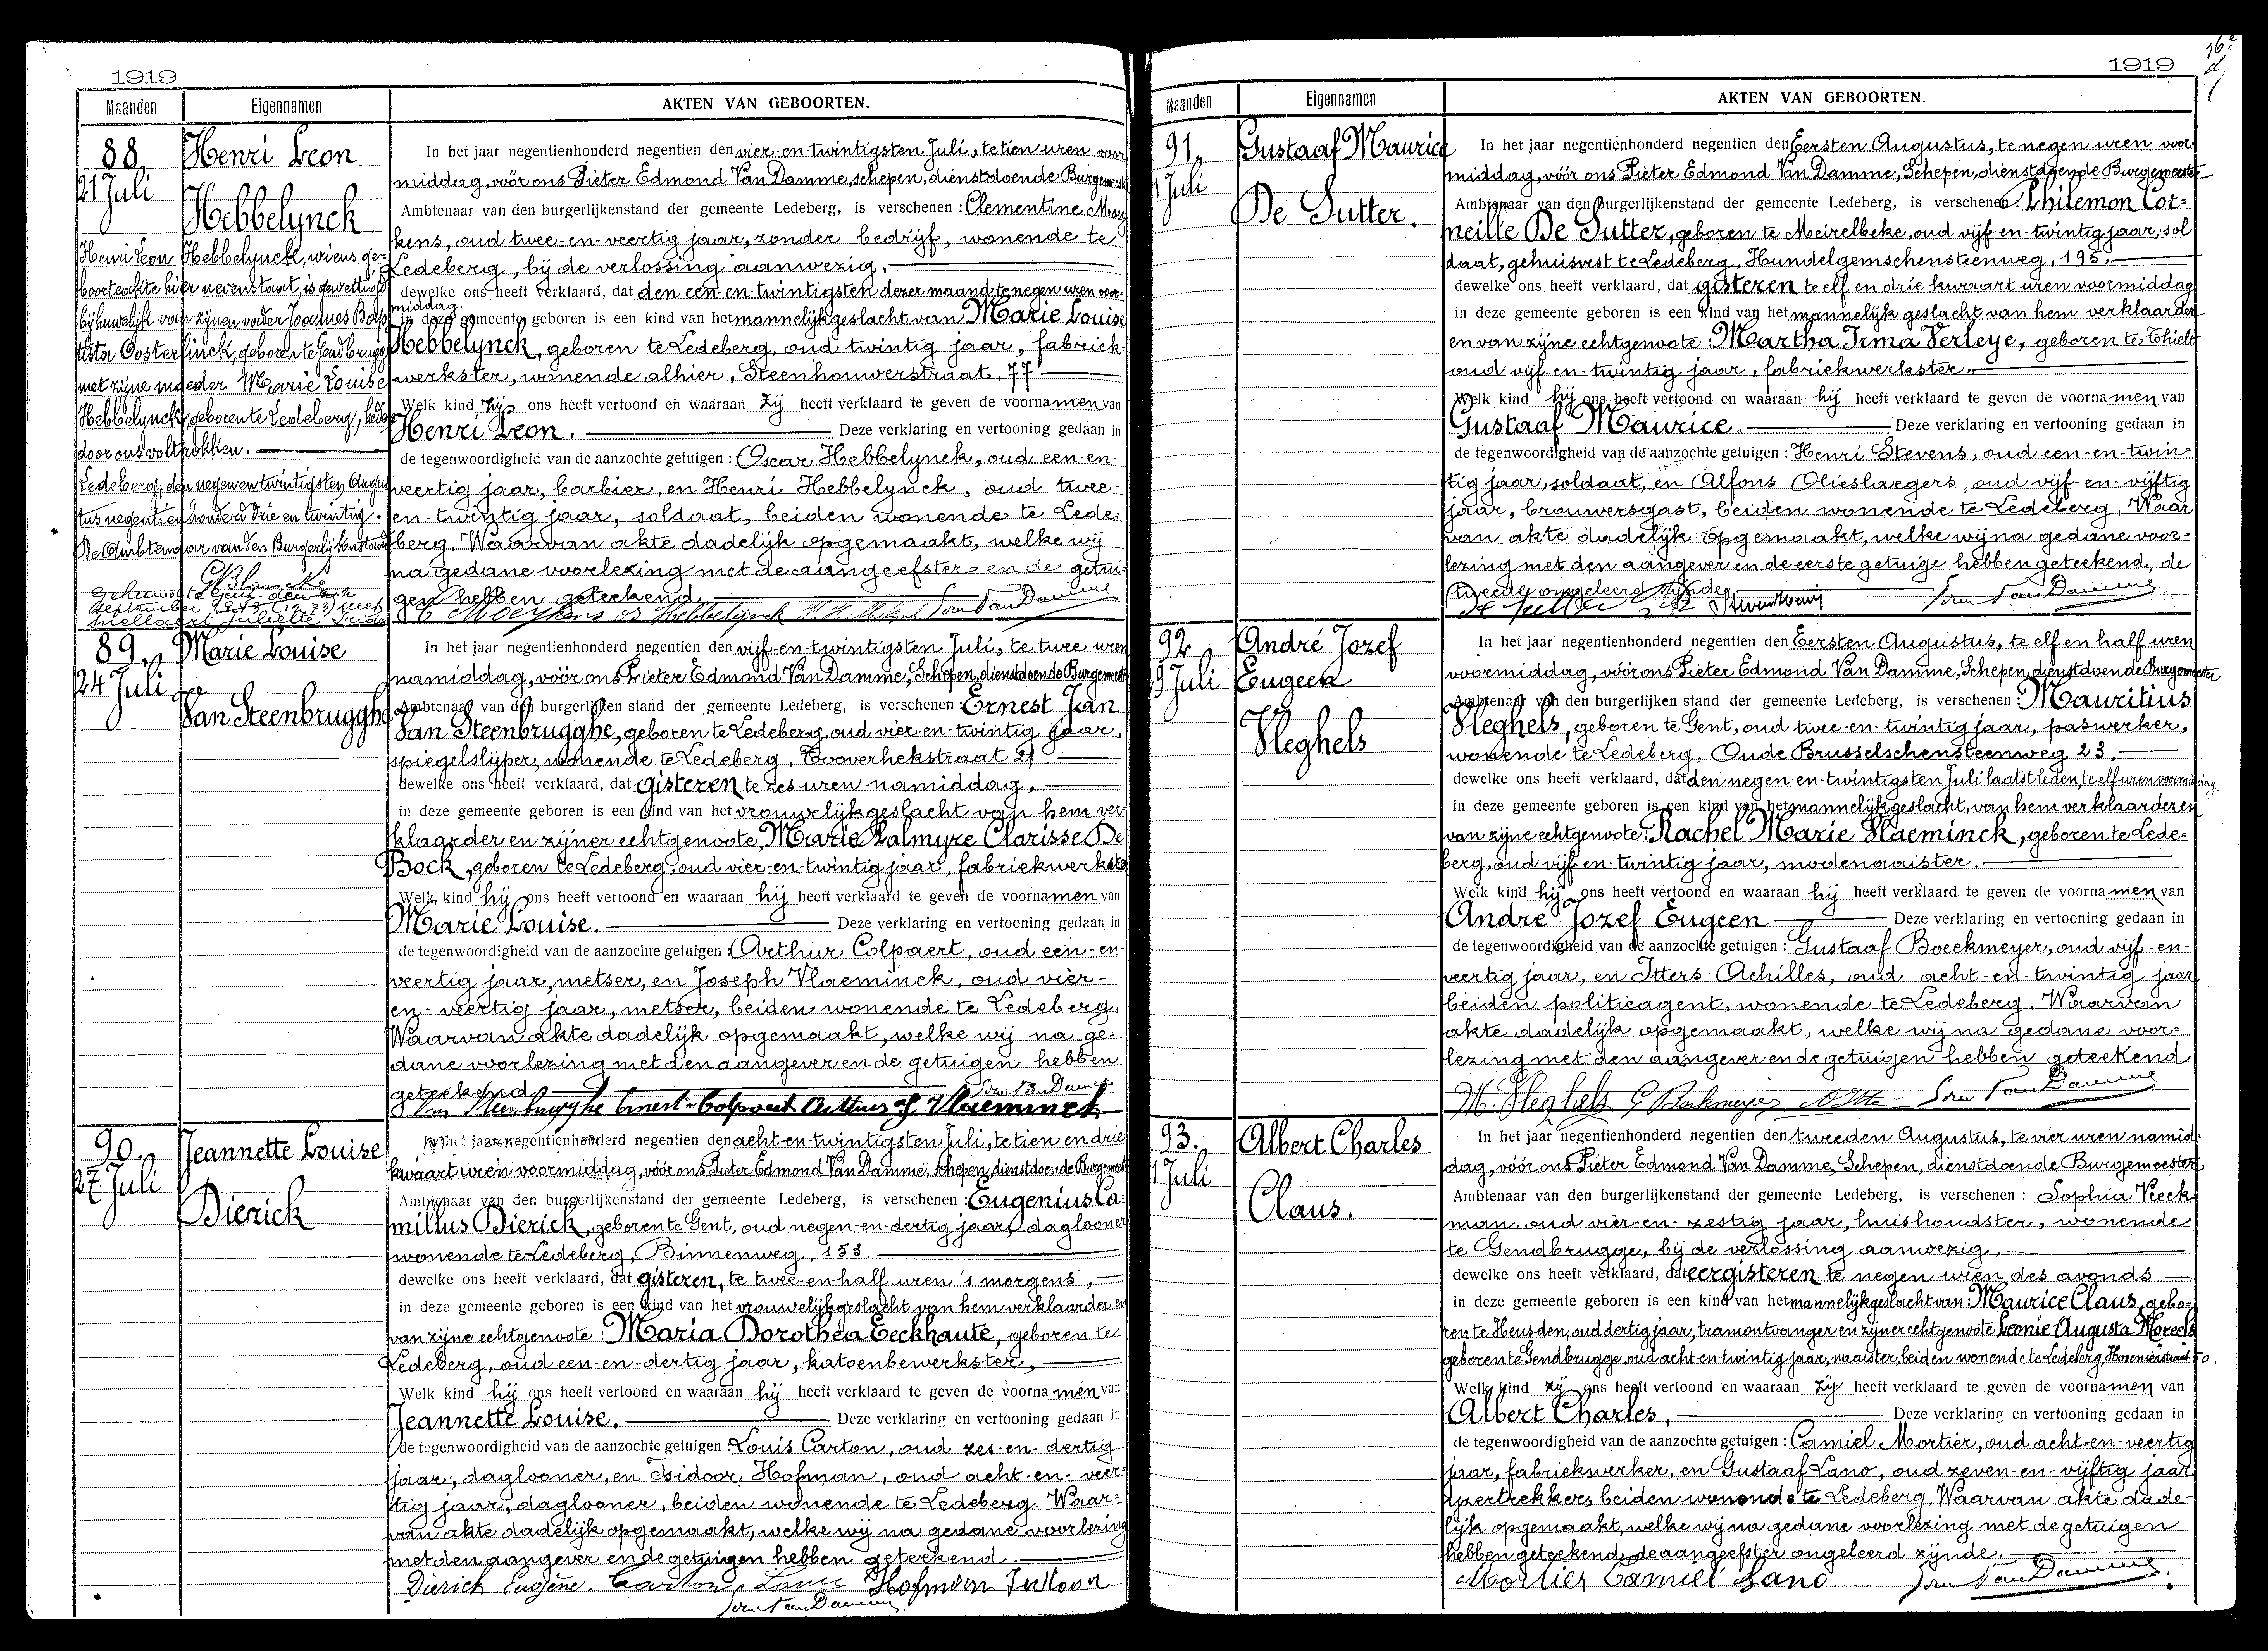 1919
Maanden Eigennamen AKTEN VAN GEBOORTEN.
88.
21 Juli
Henri Leon
Hebbelynck
Henri Leon Hebbelynck, wiens ge-
boorteakte hier nevenstaat, is gewettigd
bij huwelijk van zijnen vader Joannes Bap-
tista Oosterlinck, geboren te Gendbrugge
met zijne moeder Marie Louise
Hebbelynck, geboren te Ledeberg, heden
door ons voltrokken.
Ledeberg, den negen en twintigsten Augus
tus negentienhonderd drie en twintig.
De Ambtenaar van den Burgerlijkenstand
Gehuwd te Gent, den
September 1943 met
Snellaert Juliette
In het jaar negentienhonderd negentien den vier-en-twintigsten Juli, te tien uren voor
middag, vóór ons Pieter Edmond Van Damme, schepen, dienstdoende Burgemeester
Ambtenaar van den burgerlijkenstand der gemeente Ledeberg, is verschenen: Clementine Moey
kens, oud twee-en-veertig jaar, zonder bedrijf, wonende te
Ledeberg, bij de verlossing aanwezig,
dewelke ons heeft verklaard, dat den een-en-twintigsten dezer maand te negen uren voor-
middag.
in deze gemeente geboren is een kind van het mannelijk geslacht van Marie Louise
Hebbelynck, geboren te Ledeberg, oud twintig jaar, fabriek-
werkster, wonende alhier, Steenhouwerstraat, 77
Welk kind zij ons heeft vertoond en waaraan zij heeft verklaard te geven de voornamen van
Henri Leon. Deze verklaring en vertooning gedaan in
de tegenwoordigheid van de aanzochte getuigen: Oscar Hebbelynck, oud een-en-
veertig jaar, barbier, en Henri Hebbelynck, oud twee-
en-twintig jaar, soldaat, beiden wonende te Lede-
berg. Waarvan akte dadelijk opgemaakt, welke wij
na gedane voorlezing met de aangeefster en de getui-
gen hebben geteekend.
C Moeykens O Hebbelynck
89.
24 Juli
Marie Louise
Van Steenbrugghe
In het jaar negentienhonderd negentien den vijf-en-twintigsten Juli, te twee uren
namiddag, vóór ons Pieter Edmond Van Damme, Schepen, dienstdoende Burgemeester
Ambtenaar van den burgerlijken stand der gemeente Ledeberg, is verschenen: Ernest Jan
Van Steenbrugghe, geboren te Ledeberg, oud vier-en-twintig jaar,
spiegelslijper, wonende te Ledeberg, Tooverhekstraat 21
dewelke ons heeft verklaard, dat gisteren te zes uren namiddag,
in deze gemeente geboren is een kind van het vrouwelijk geslacht van hem ver-
klaarder en zijner echtgenoote, Marie Palmyre Clarisse De
Bock, geboren te Ledeberg, oud vier-en-twintig jaar, fabriekwerkster
Welk kind hij ons heeft vertoond en waaraan hij heeft verklaard te geven de voornamen van
Marie Louise. Deze verklaring en vertooning gedaan in
de tegenwoordigheid van de aanzochte getuigen: Arthur Colpaert, oud een-en-
veertig jaar, metser, en Joseph Vlaeminck, oud vier-
en-veertig jaar, metser, beiden wonende te Ledeberg.
Waarvan akte dadelijk opgemaakt, welke wij na ge-
dane voorlezing met den aangever en de getuigen hebben
geteekend
Van Steenbrugghe Ernest Colpaert Arthur J Vlaeminck
90.
27 Juli
Jeannette Louise
Dierick
In het jaar negentienhonderd negentien den acht-en-twintigsten Juli, te tien en drie
kwaart uren voormiddag, vóór ons Pieter Edmond Van Damme, schepen, dienstdoende Burgemeester
Ambtenaar van den burgerlijkenstand der gemeente Ledeberg, is verschenen: Eugenius Ca-
millus Dierick, geboren te Gent, oud negen-en-dertig jaar, daglooner
wonende te Ledeberg, Binnenweg, 153.
dewelke ons heeft verklaard, dat gisteren, te twee-en-half uren 's morgens,
in deze gemeente geboren is een kind van het vrouwelijk geslacht van hem verklaarder en
van zijne echtgenoote: Maria Dorothea Eeckhaute, geboren te
Ledeberg, oud een-en-dertig jaar, katoenbewerkster,
Welk kind hij ons heeft vertoond en waaraan hij heeft verklaard te geven de voornamen van
Jeannette Louise. Deze verklaring en vertooning gedaan in
de tegenwoordigheid van de aanzochte getuigen: Louis Carton, oud zes-en-dertig
jaar, daglooner, en Isidoor Hofman, oud acht-en-veer-
tig jaar, daglooner, beiden wonende te Ledeberg. Waar-
van akte dadelijk opgemaakt, welke wij na gedane voorlezing
met den aangever en de getuigen hebben geteekend.
Dierick Eugène. Carton Louis Hofman Isidoor
1919
Maanden Eigennamen AKTEN VAN GEBOORTEN.
91.
1 Juli
Gustaaf Maurice
De Sutter.
In het jaar negentienhonderd negentien den Eersten Augustus, te negen uren voor
middag, vóór ons Pieter Edmond Van Damme, Schepen, dienstdoende Burgemeester
Ambtenaar van den Burgerlijkenstand der gemeente Ledeberg, is verschenen: Philemon Cor-
neille De Sutter, geboren te Meirelbeke, oud vijf-en-twintig jaar, sol
daat, gehuisvest te Ledeberg, Hundelgemschensteenweg, 195.
dewelke ons heeft verklaard, dat gisteren te elf en drie kwaart uren voormiddag
in deze gemeente geboren is een kind van het mannelijk geslacht van hem verklaarder
en van zijne echtgenoote: Martha Irma Verleye, geboren te Thielt
oud vijf-en-twintig jaar, fabriekwerkster.
Welk kind hij ons heeft vertoond en waaraan hij heeft verklaard te geven de voornamen van
Gustaaf Maurice. Deze verklaring en vertooning gedaan in
de tegenwoordigheid van de aanzochte getuigen: Henri Stevens, oud een-en-twin-
tig jaar, soldaat, en Alfons Olieslaegers, oud vijf-en-vijftig
jaar, brouwersgast, beiden wonende te Ledeberg. Waar
van akte dadelijk opgemaakt, welke wij na gedane voor-
lezing met den aangever en de eerste getuige hebben geteekend, de
tweede ongeleerd zijnde
92.
9 Juli
André Jozef
Eugeen
Sleghels
In het jaar negentienhonderd negentien den Eersten Augustus, te elf en half uren
voormiddag, vóór ons Pieter Edmond Van Damme, Schepen, dienstdoende Burgemeester
Ambtenaar van den burgerlijken stand der gemeente Ledeberg, is verschenen: Mauritius
Sleghels, geboren te Gent, oud twee-en-twintig jaar, paswerker,
wonende te Ledeberg, Oude Brusselschensteenweg 23,
dewelke ons heeft verklaard, dat den negen-en-twintigsten Juli laatstleden, te elf uren voormiddag
in deze gemeente geboren is een kind van het mannelijk geslacht, van hem verklaarder en
van zijne echtgenoote: Rachel Marie Vlaeminck, geboren te Lede-
berg, oud vijf-en-twintig jaar, modenaaister.
Welk kind hij ons heeft vertoond en waaraan hij heeft verklaard te geven de voornamen van
André Jozef Eugeen Deze verklaring en vertooning gedaan in
de tegenwoordigheid van de aanzochte getuigen: Gustaaf Boeckmeyer, oud vijf-en-
veertig jaar, en Itters Achilles, oud acht-en-twintig jaar
beiden politieagent, wonende te Ledeberg. Waarvan
akte dadelijk opgemaakt, welke wij na gedane voor-
lezing met den aangever en de getuigen hebben geteekend
M. Sleghels G Boekmeyer
93.
1 Juli
Albert Charles
Claus.
In het jaar negentienhonderd negentien den tweeden Augustus, te vier uren namid-
dag, vóór ons Pieter Edmond Van Damme, Schepen, dienstdoende Burgemeester
Ambtenaar van den burgerlijkenstand der gemeente Ledeberg, is verschenen: Sophia Veeck
man, oud vier-en-zestig jaar, huishoudster, wonende
te Gendbrugge, bij de verlossing aanwezig,
dewelke ons heeft verklaard, dat eergisteren te negen uren des avonds
in deze gemeente geboren is een kind van het mannelijk geslacht van: Maurice Claus, gebo-
ren te Heusden, oud dertig jaar, tramontvanger en zijner echtgenoote Leonie Augusta Moreels
geboren te Gendbrugge, oud acht en twintig jaar, naaister, beiden wonende te Ledeberg, Hovenierstraat 50.
Welk kind zij ons heeft vertoond en waaraan zij heeft verklaard te geven de voornamen van
Albert Charles. Deze verklaring en vertooning gedaan in
de tegenwoordigheid van de aanzochte getuigen: Camiel Mortier, oud acht-en-veertig
jaar, fabriekwerker, en Gustaaf Lano, oud zeven-en-vijftig jaar
ijzertrekker, beiden wonende te Ledeberg. Waarvan akte dade-
lijk opgemaakt, welke wij na gedane voorlezing met de getuigen
hebben geteekend, de aangeefster ongeleerd zijnde.
Mortier Camiel Lano